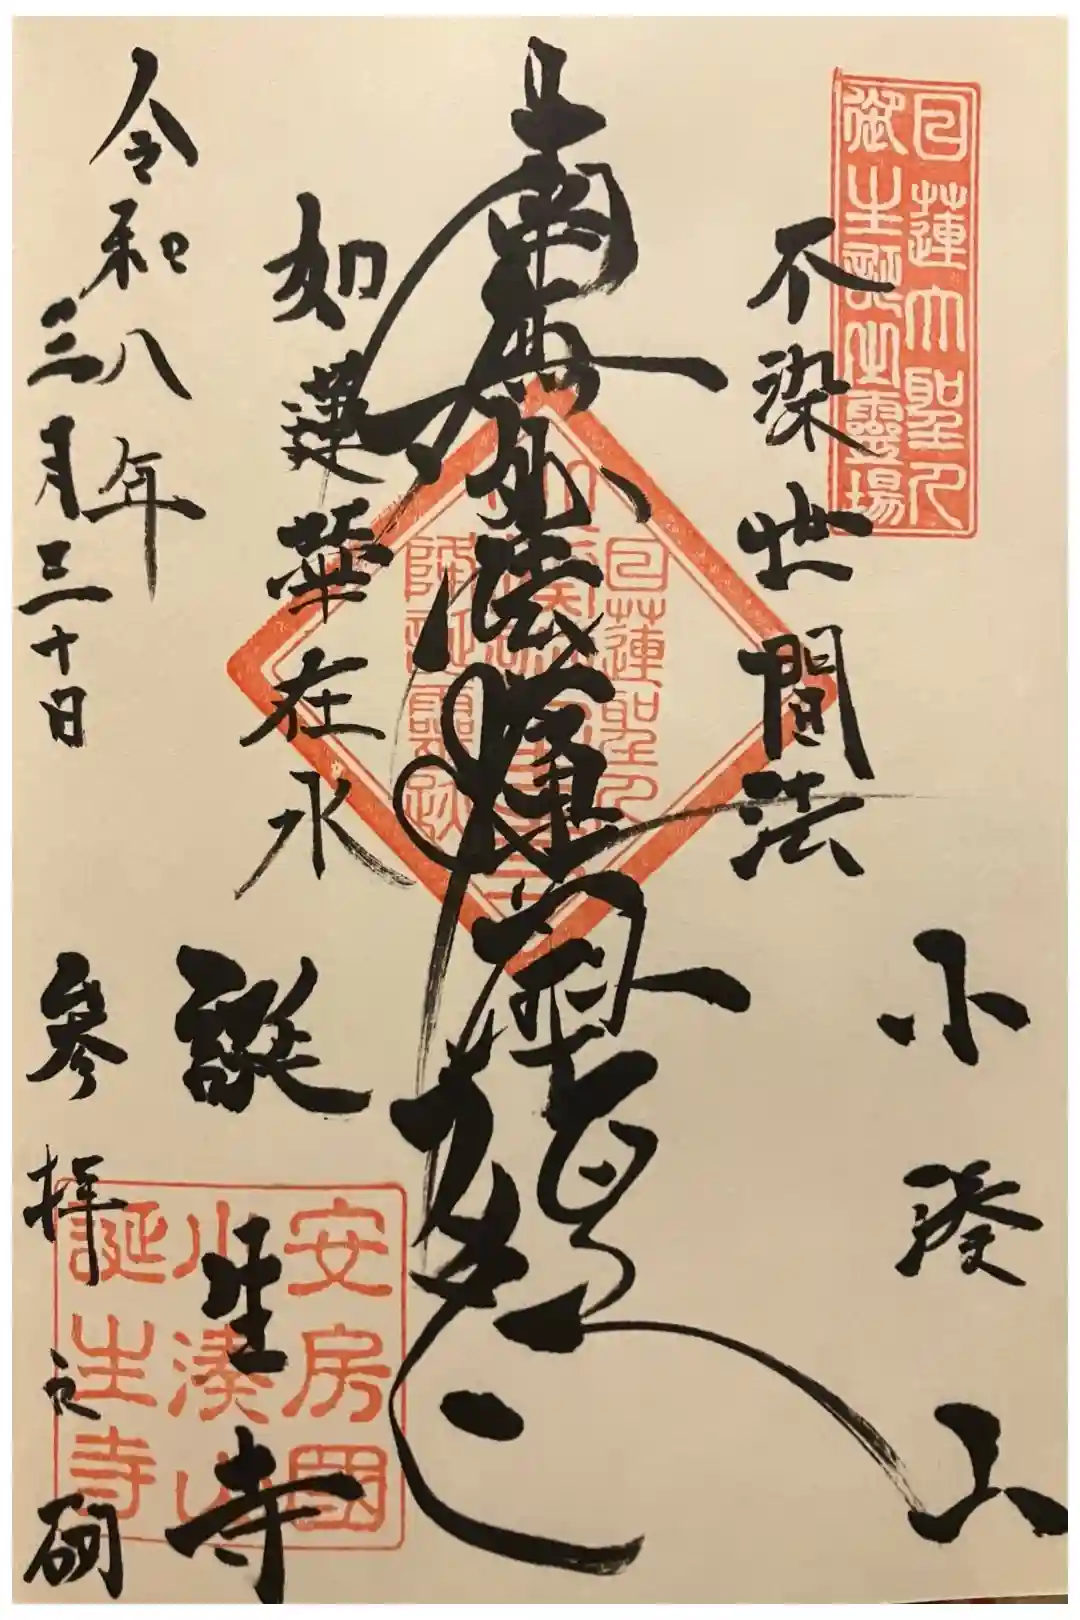 日蓮大聖人
御生誕之靈場
不染世間法
小湊山
南無妙法蓮華経
日蓮聖人
降誕靈跡
如蓮華在水
誕生寺
安房國
小湊山
誕生寺
令和八年
三月三十日
参拝之砌